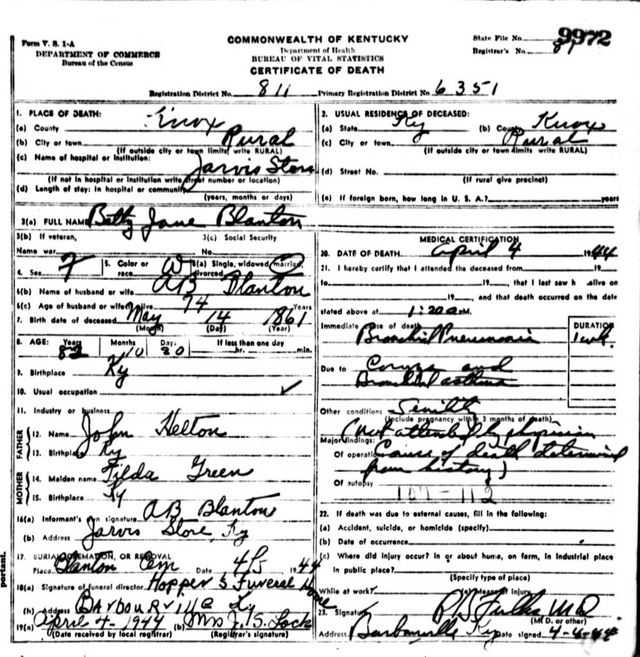 Form V. S. 1-A
DEPARTMENT OF COMMERCE
Bureau of the Census
COMMONWEALTH OF KENTUCKY
Department of Health
BUREAU OF VITAL STATISTICS
CERTIFICATE OF DEATH
State File No. 9972
Registrar's No. 81
Registration District No. 811 Primary Registration District No. 6351
1. PLACE OF DEATH:
(a) County Knox
(b) City or town Rural
(If outside city or town limits write RURAL)
(c) Name of hospital or institution: Jarvis Store
(If not in hospital or institution write street number or location)
(d) Length of stay: in hospital or community
(years, months or days)
2. USUAL RESIDENCE OF DECEASED:
(a) State Ky (b) County Knox
(c) City or town Rural
(If outside city or town limits write RURAL)
(d) Street No.
(If rural give precinct)
(e) If foreign born, how long in U. S. A.? years
3(a) FULL NAME Betty Jane Blanton
3(b) If veteran, 3(c) Social Security
Name war No.
4. Sex F 5. Color or race W 6(a) Single, widowed, married, divorced
6(b) Name of husband or wife AB Blanton
6(c) Age of husband or wife if alive 74
7. Birth date of deceased May 14 1861
(Month) (Day) (Year)
8. AGE: Years Months Days If less than one day
82 10 20 hr. min.
9. Birthplace Ky
10. Usual occupation ✓
11. Industry or business
FATHER
12. Name John Helton
13. Birthplace Ky
MOTHER
14. Maiden name Tilda Green
15. Birthplace Ky
16(a) Informant's own signature AB Blanton
(b) Address Jarvis Store Ky
17. BURIAL, CREMATION, OR REMOVAL
Place Blanton Cem Date 4/5 1944
18(a) Signature of funeral director Hopper S Funeral Home
(b) Address Barbourville Ky
19(a) April 4-1944 (b) Mrs J. S. Lock
(Date received by local registrar) (Registrar's signature)
MEDICAL CERTIFICATION
20. DATE OF DEATH April 4 1944
21. I hereby certify that I attended the deceased from 19
to 19 , that I last saw h alive on
19 , and that death occurred on the date
stated above at 1:20 a.M.
Immediate cause of death DURATION
Bronchial Pneumonia 1 wk.
Due to Coryza and
Bronchial asthma
Other conditions Senility
(Include pregnancy within 3 months of death)
(not attended by physician
Major findings:
Of operation Cause of death determined
from history)
Of autopsy
107-112
22. If death was due to external causes, fill in the following:
(a) Accident, suicide, or homicide (specify)
(b) Date of occurrence
(c) Where did injury occur? in or about home, on farm, in industrial place
in public place?
(Specify type of place)
While at work? Means of injury
23. Signature MD
(M. D. or other)
Address Barbourville Ky Date signed 4-6-44
portant.